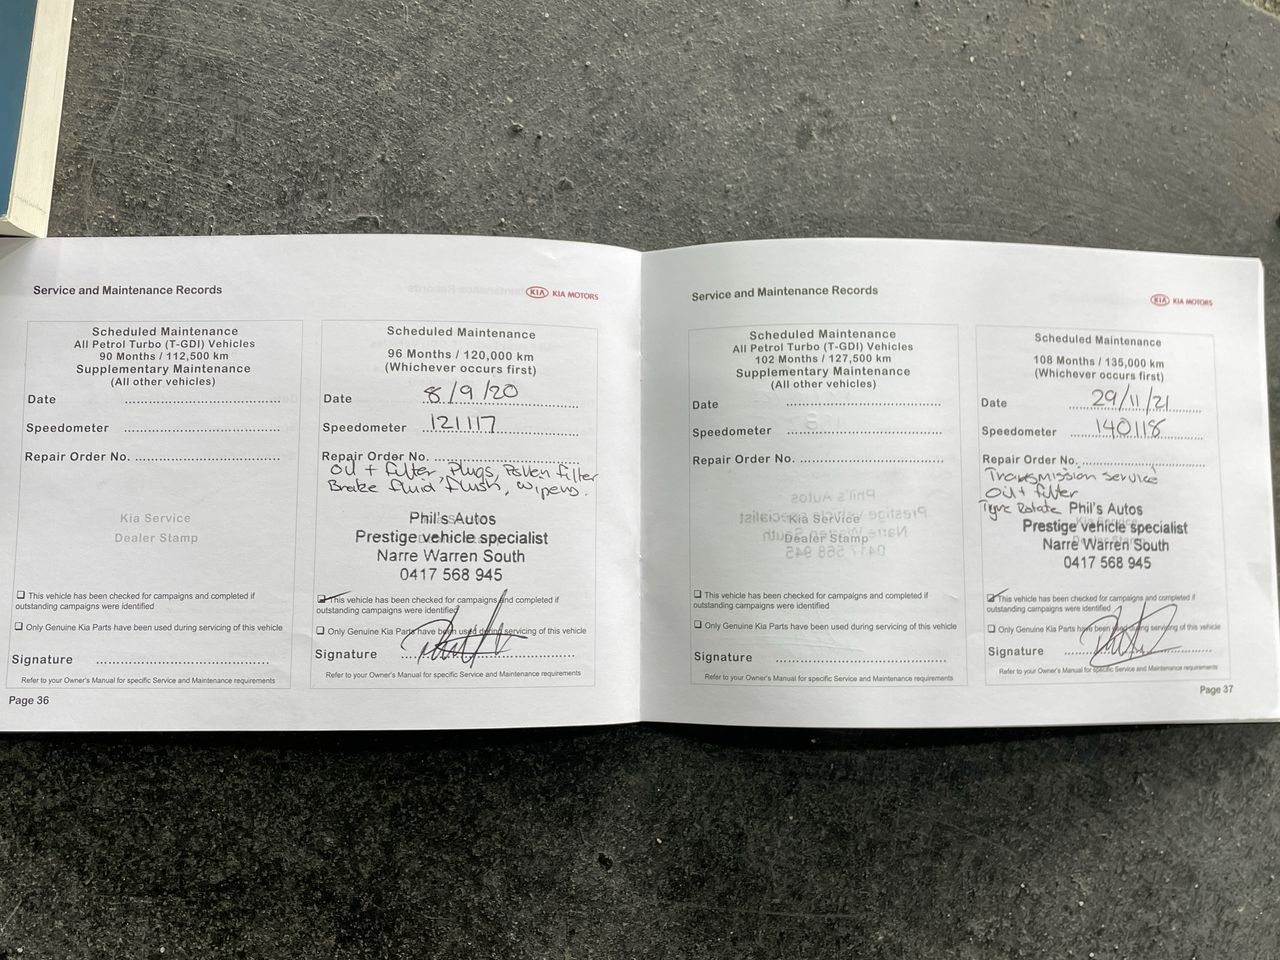 Service and Maintenance Records
KIA KIA MOTORS
Scheduled Maintenance
All Petrol Turbo (T-GDI) Vehicles
90 Months / 112,500 km
Supplementary Maintenance
(All other vehicles)
Date
Speedometer
Repair Order No.
Kia Service
Dealer Stamp
This vehicle has been checked for campaigns and completed if
outstanding campaigns were identified
Only Genuine Kia Parts have been used during servicing of this vehicle
Signature
Refer to your Owner's Manual for specific Service and Maintenance requirements
Page 36
Scheduled Maintenance
96 Months / 120,000 km
(Whichever occurs first)
Date 8/9/20
Speedometer 121117
Repair Order No.
Oil + filter, Plugs, Pollen filter
Brake fluid flush, wipers.
Phil's Autos
Prestige vehicle specialist
Narre Warren South
0417 568 945
This vehicle has been checked for campaigns and completed if
outstanding campaigns were identified
Only Genuine Kia Parts have been used during servicing of this vehicle
Signature
Refer to your Owner's Manual for specific Service and Maintenance requirements
Service and Maintenance Records
KIA KIA MOTORS
Scheduled Maintenance
All Petrol Turbo (T-GDI) Vehicles
102 Months / 127,500 km
Supplementary Maintenance
(All other vehicles)
Date
Speedometer
Repair Order No.
Kia Service
Dealer Stamp
This vehicle has been checked for campaigns and completed if
outstanding campaigns were identified
Only Genuine Kia Parts have been used during servicing of this vehicle
Signature
Refer to your Owner's Manual for specific Service and Maintenance requirements
Scheduled Maintenance
108 Months / 135,000 km
(Whichever occurs first)
Date 29/11/21
Speedometer 140118
Repair Order No.
Transmission service
Oil + filter
Tyre Rotate Phil's Autos
Prestige vehicle specialist
Narre Warren South
0417 568 945
This vehicle has been checked for campaigns and completed if
outstanding campaigns were identified
Only Genuine Kia Parts have been used during servicing of this vehicle
Signature
Refer to your Owner's Manual for specific Service and Maintenance requirements
Page 37